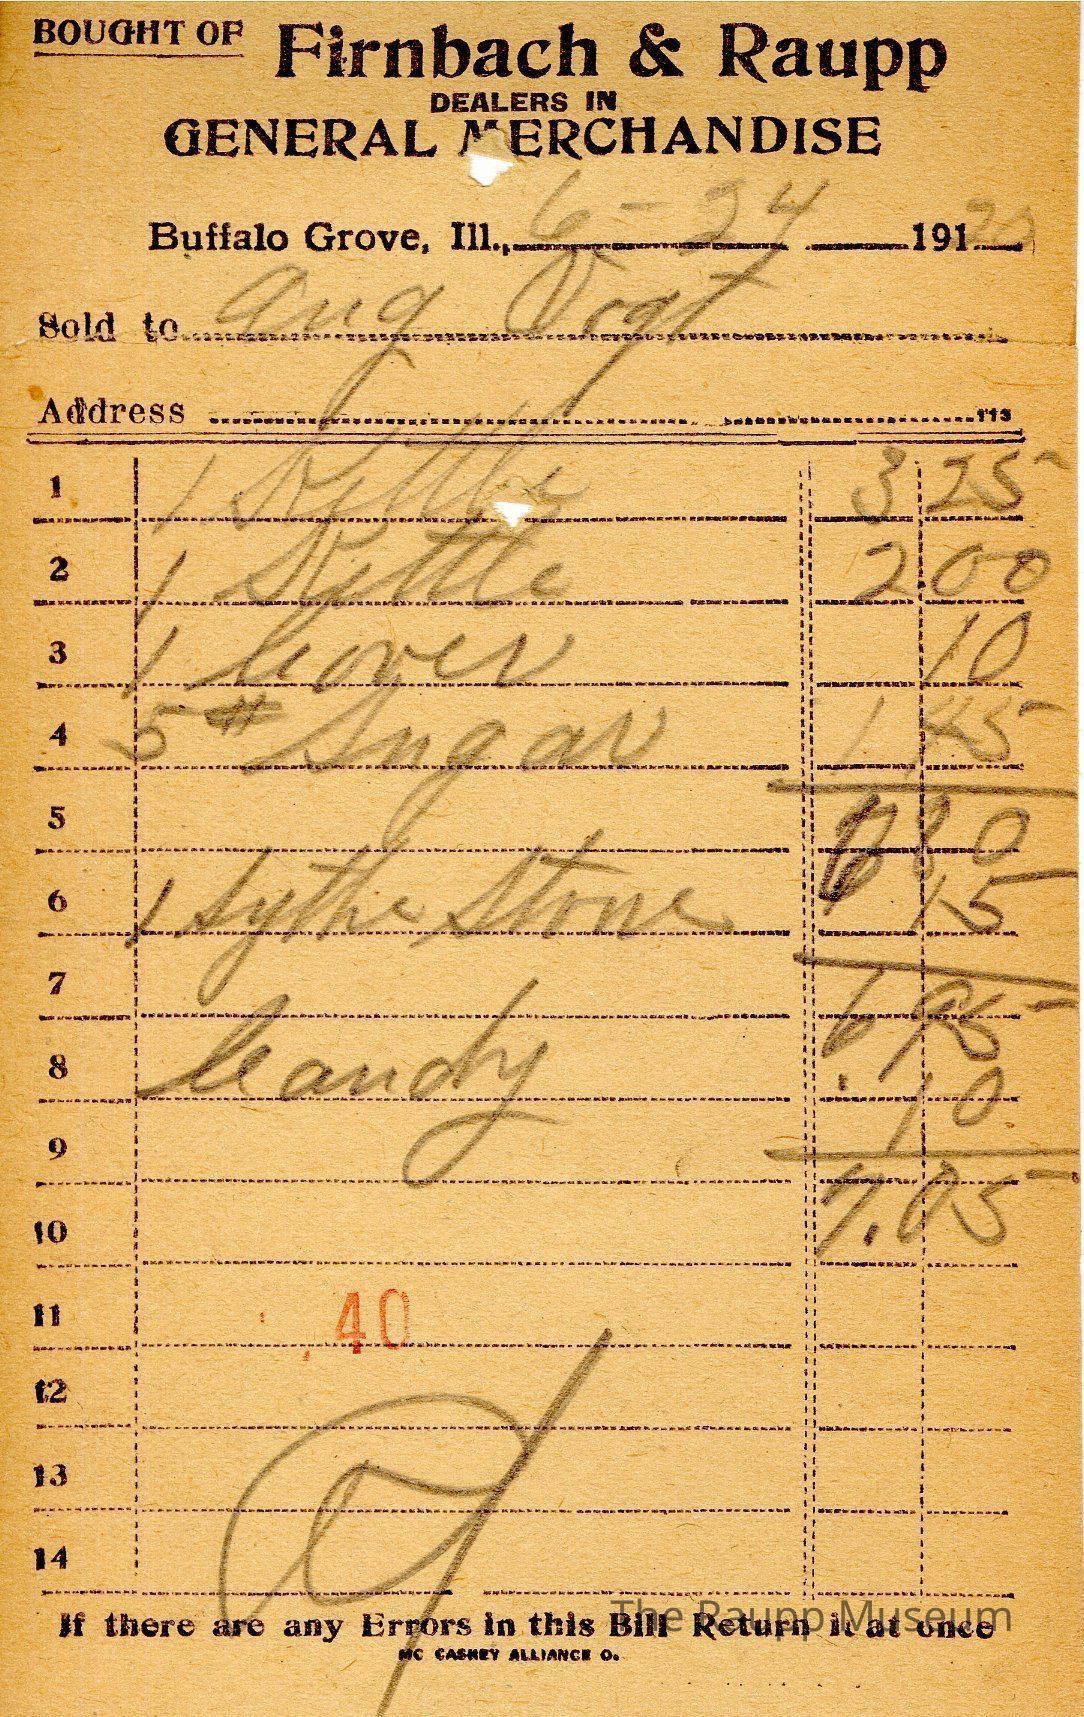 BOUGHT OF Firnbach & Raupp
DEALERS IN
GENERAL MERCHANDISE
Buffalo Grove, Ill., 6-24 191 20
Sold to Aug Vogt
Address 113
1 1 Kyttle 3 25
2 1 Kyttle 2.00
3 1 Cover 10
4 5# Sugar 1 45
5 6 80
6 1 Sythe Stone 15
7 6 95
8 Candy .10
9
10 7.05
11 40
12
13
14
If there are any Errors in this Bill Return it at once
MC CASKEY ALLIANCE O.
The Raupp Museum